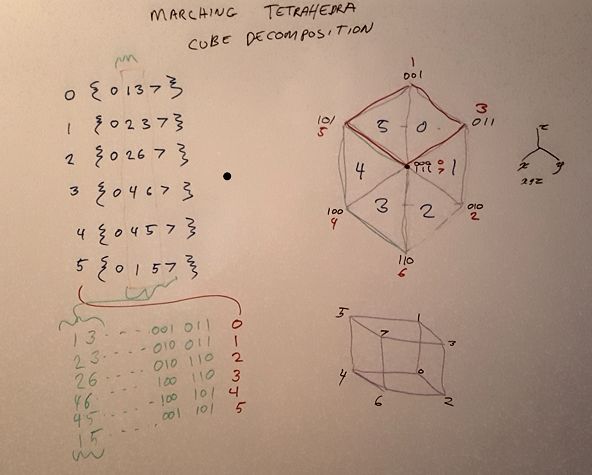 MARCHING TETRAHEDRA
CUBE DECOMPOSITION
0 { 0 1 3 7 }
1 { 0 2 3 7 }
2 { 0 2 6 7 }
3 { 0 4 6 7 }
4 { 0 4 5 7 }
5 { 0 1 5 7 }
1 3 . . . . 001 011 0
2 3 . . . . 010 011 1
2 6 . . . . 010 110 2
4 6 . . . . 100 110 3
4 5 . . . . 100 101 4
1 5 . . . . 001 101 5
1
001
101
5
3
011
5 0
000 0
111 7
4 1
3 2
100
4
010
2
110
6
z
x y
xyz
5 1
7 3
4 0
6 2